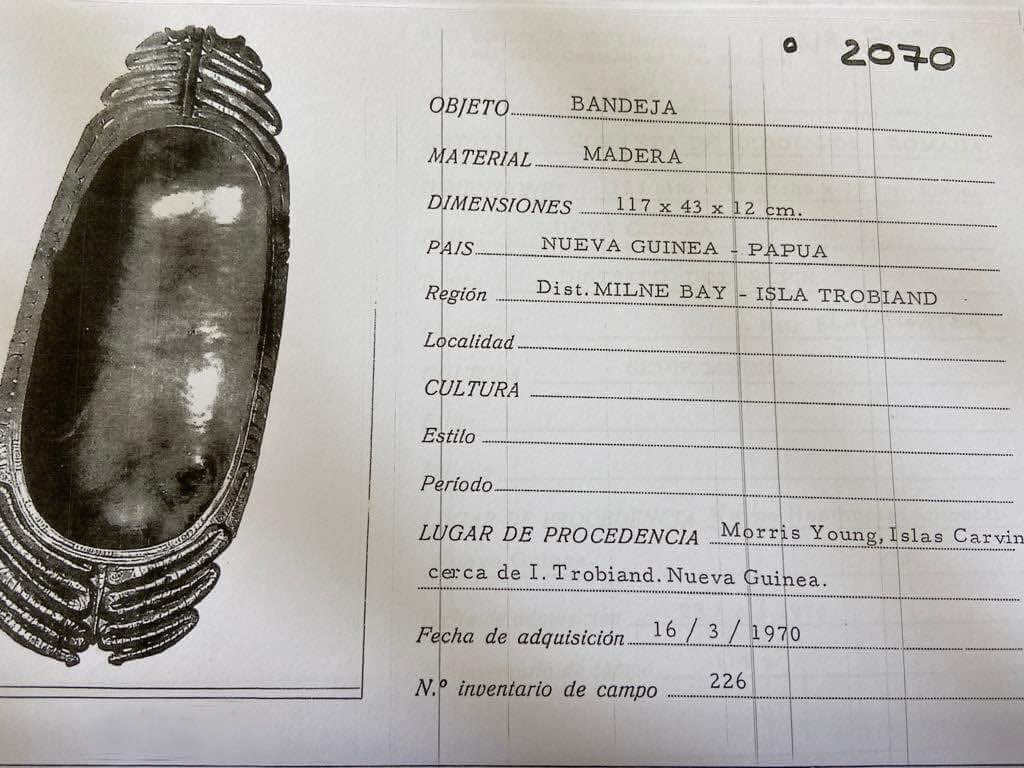 ° 2070
OBJETO BANDEJA
MATERIAL MADERA
DIMENSIONES 117 x 43 x 12 cm.
PAIS NUEVA GUINEA - PAPUA
Región Dist. MILNE BAY - ISLA TROBIAND
Localidad
CULTURA
Estilo
Período
LUGAR DE PROCEDENCIA Morris Young, Islas Carvin
cerca de I. Trobiand. Nueva Guinea.
Fecha de adquisición 16 / 3 / 1970
N.º inventario de campo 226